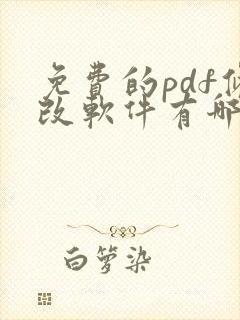 免費的pdf修
改軟件有哪
白箩染